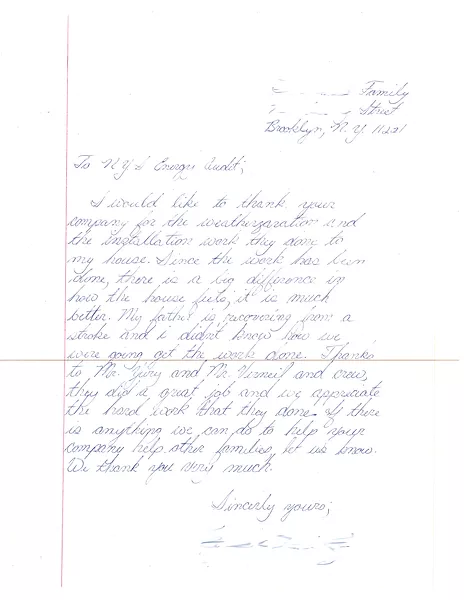 Family
Street
Brooklyn, N.Y. 11221
To N Y S Energy Audit,
I would like to thank your
company for the weatherzaration and
the installation work they done to
my house. Since the work has been
done, there is a big difference in
how the house feels, it is much
better. My father is recovering from a
stroke and i didn't know how we
were going get the work done. Thanks
to Mr. and Mr. and crew,
they did a great job and we appreciate
the hard work that they done. If there
is anything we can do to help your
company help other families, let us know.
We thank you very much.
Sincerly yours,